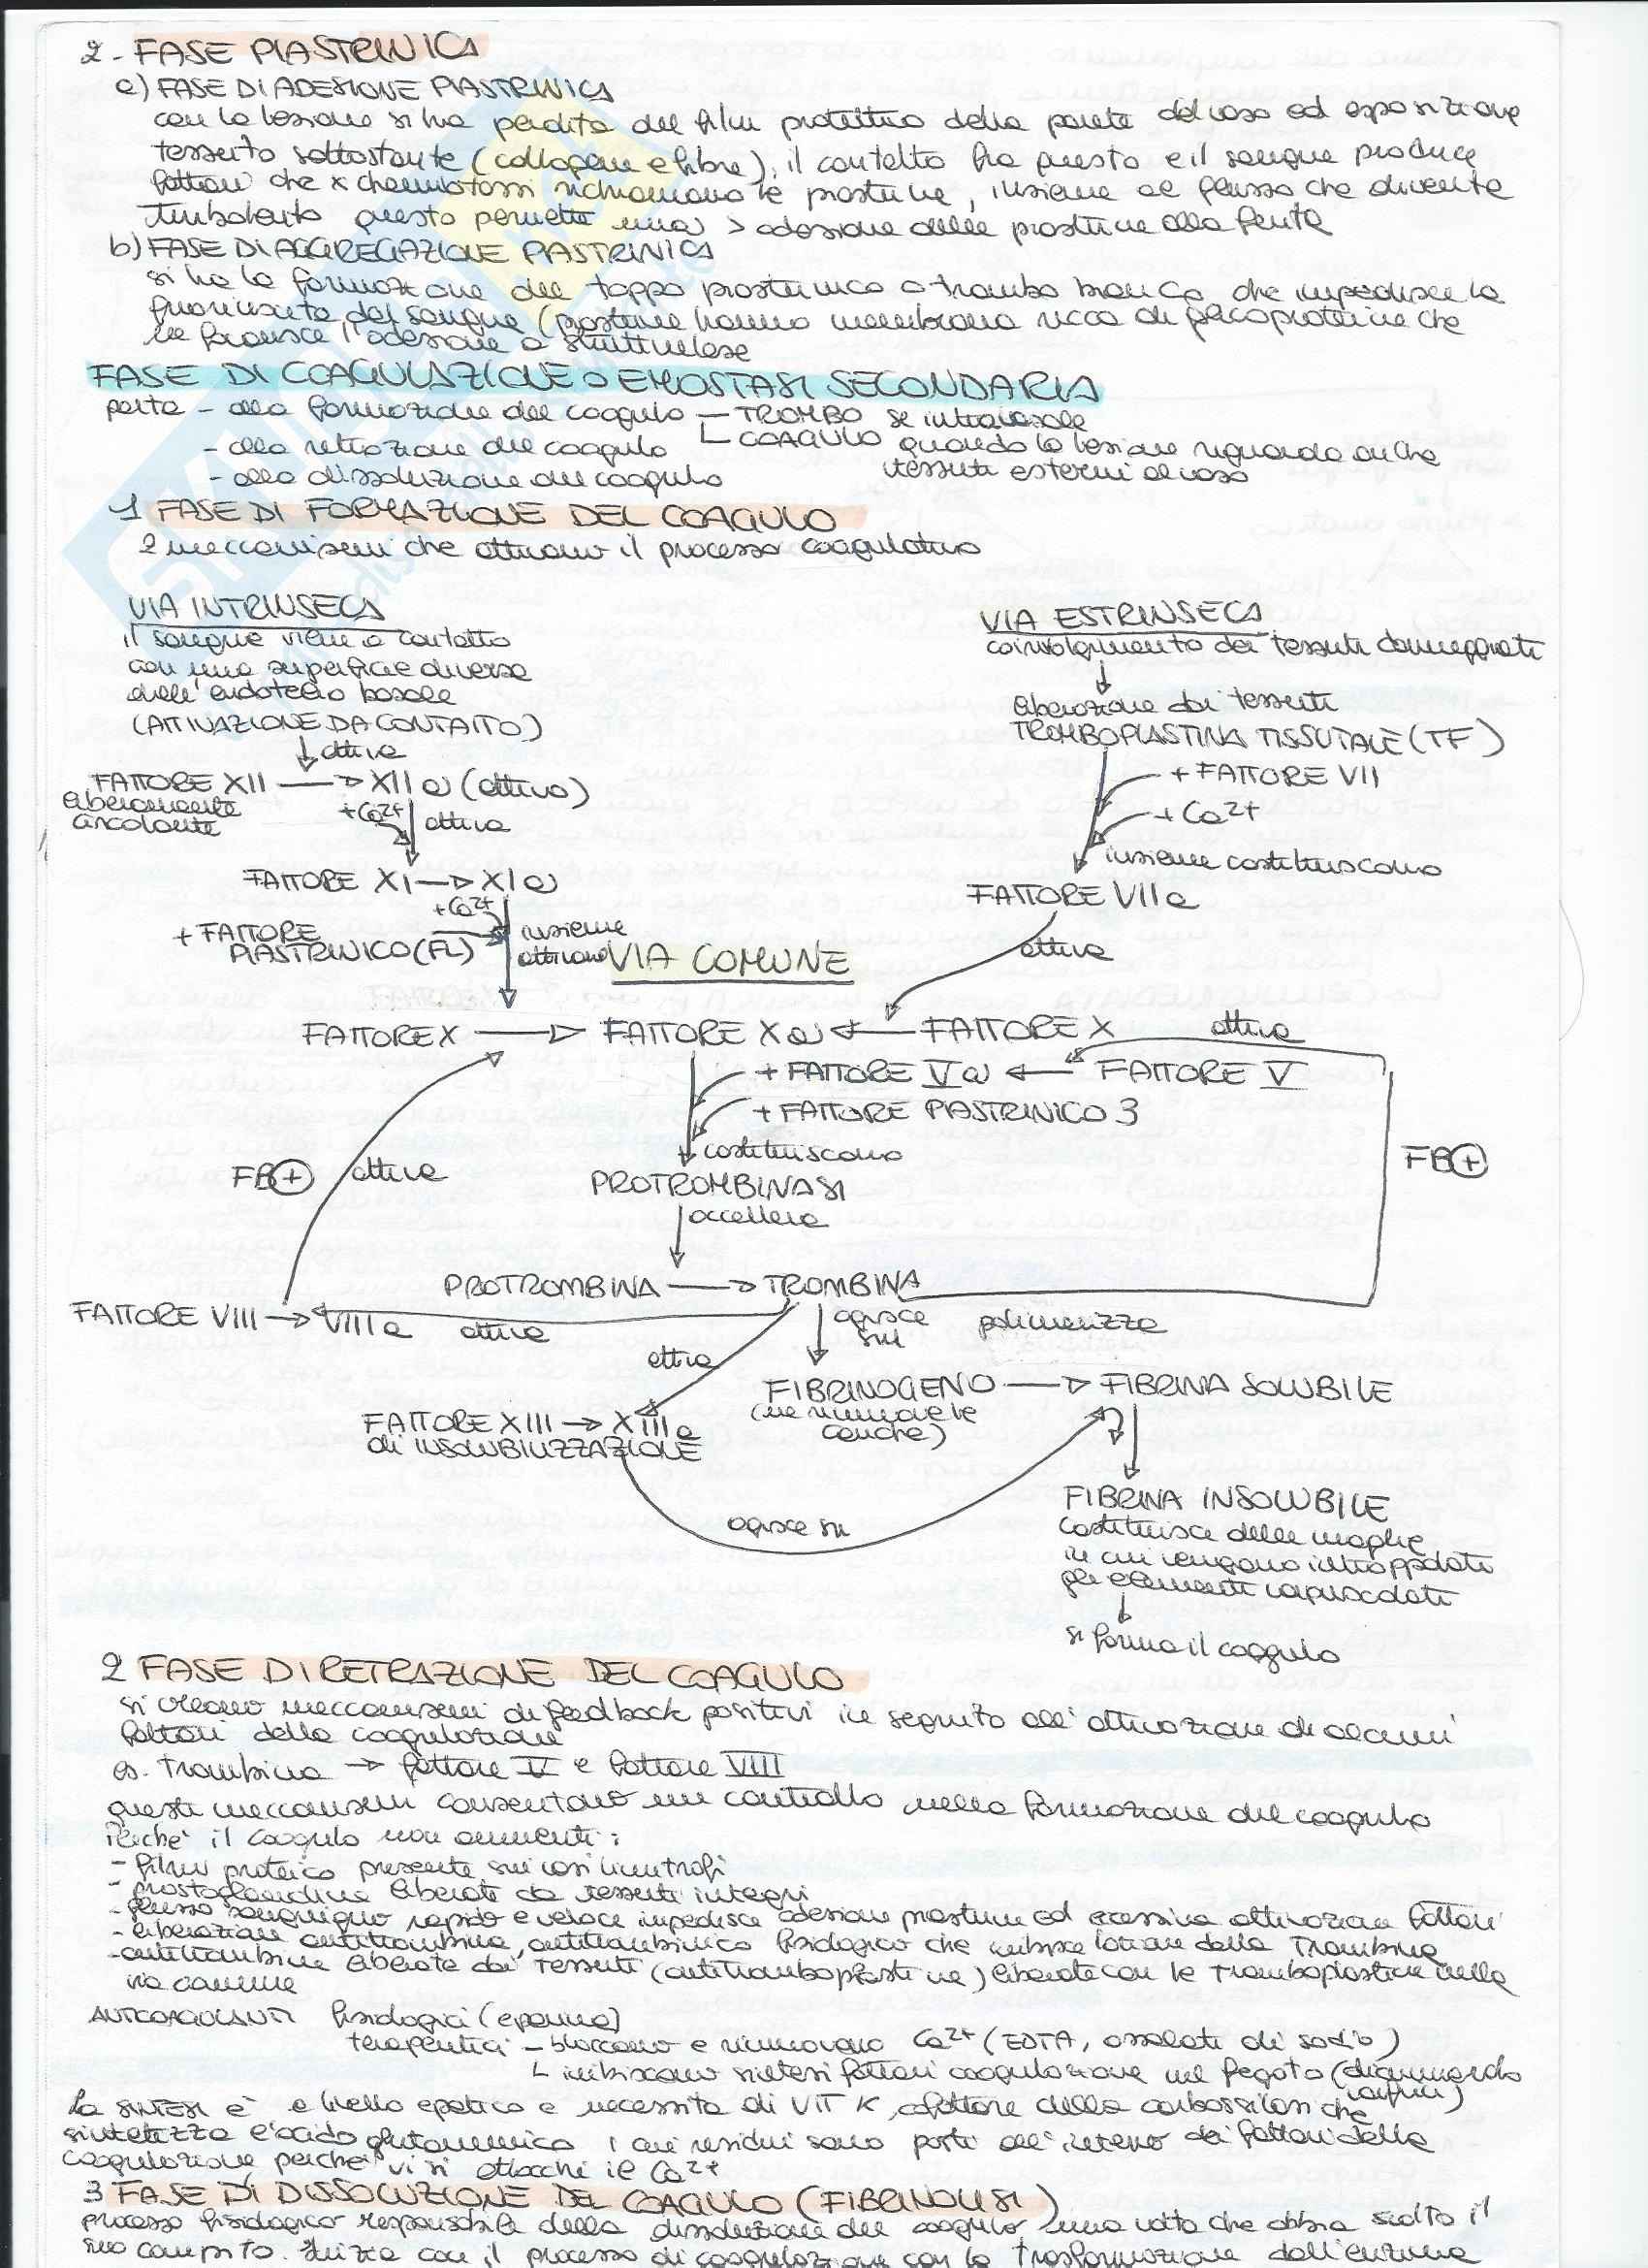 2 - FASE PIASTRINICA
a) FASE DI ADESIONE PIASTRINICA
con la lesione si ha perdita del film protettivo della parete del vaso ed esposizione
tessuto sottostante (collagene e fibre), il contatto fra questo e il sangue produce
fattori che x chemiotassi richiamano le piastrine, insieme al flusso che diventa
turbolento questo permette una > adesione delle piastrine alla ferita
b) FASE DI AGGREGAZIONE PIASTRINICA
si ha la formazione del tappo piastrinico o trombo bianco che impedisce la
fuoriuscita del sangue (piastrine hanno membrana ricca di glicoproteine che
ne favorisce l'adesione a strutture lese
FASE DI COAGULAZIONE O EMOSTASI SECONDARIA
porta - alla formazione del coagulo - TROMBO se intravasale
COAGULO quando la lesione riguarda anche
- alla retrazione del coagulo
tessuti esterni al vaso
- alla dissoluzione del coagulo
1 FASE DI FORMAZIONE DEL COAGULO
2 meccanismi che attivano il processo coagulativo
VIA INTRINSECA
il sangue viene a contatto
con una superficie diversa
dall'endotelio basale
(ATTIVAZIONE DA CONTATTO)
attiva
FATTORE XII → XII a (attivo)
liberamente
circolante
+Ca2+
attiva
FATTORE XI → XI a
+Ca2+
+ FATTORE
PIASTRINICO (FL)
insieme
attivano
VIA ESTRINSECA
coinvolgimento dei tessuti danneggiati
liberazione dai tessuti
TROMBOPLASTINA TISSUTALE (TF)
+ FATTORE VII
+ Ca2+
insieme costituiscono
FATTORE VIIa
attiva
VIA COMUNE
FATTORE X → FATTORE X a ← FATTORE X
attiva
+ FATTORE V a ← FATTORE V
+ FATTORE PIASTRINICO 3
costituiscono
FB+ attiva
FB+
PROTROMBINASI
accelera
PROTROMBINA → TROMBINA
FATTORE VIII → VIIIa
attiva
agisce
su
polimerizza
attiva
FIBRINOGENO → FIBRINA SOLUBILE
(ne rimuove le
cariche)
FATTORE XIII → XIII a
di INSOLUBILIZZAZIONE
agisce su
FIBRINA INSOLUBILE
costituisce delle maglie
in cui vengono intrappolati
gli elementi
si forma il coagulo
2 FASE DI RETRAZIONE DEL COAGULO
si creano meccanismi di feedback positivi in seguito all'attivazione di alcuni
fattori della coagulazione
es. trombina → fattore V e fattore VIII
questi meccanismi consentono un controllo nella formazione del coagulo
Perché il coagulo non aumenti:
- film proteico presente sui vasi limitrofi
- prostaglandine liberate da tessuti integri
- flusso sanguigno rapido e veloce impedisce adesione piastrine ed eccessiva attivazione fattori
- liberazione antitrombina, antitrombinico fisiologico che inibisce l'azione della Trombina
- antitrombine liberate dai tessuti (antitromboplastine) liberate con le tromboplastine nella
via comune
ANTICOAGULANTI fisiologici (eparina)
terapeutici - bloccano e rimuovano Ca2+ (EDTA, ossalati di sodio)
inibiscono sintesi fattori coagulazione nel fegato
La SINTESI è a livello epatico e necessita di VIT K, cofattore della carbossilasi che
sintetizza l'acido glutammico i cui residui sono posti all'interno dei fattori della
coagulazione perché vi si attacchi il Ca2+
3 FASE DI DISSOLUZIONE DEL COAGULO (FIBRINOLISI)
processo fisiologico responsabile della dissoluzione del coagulo una volta che abbia svolto il
suo compito. Inizia con il processo di coagulazione con la trasformazione dell'enzima